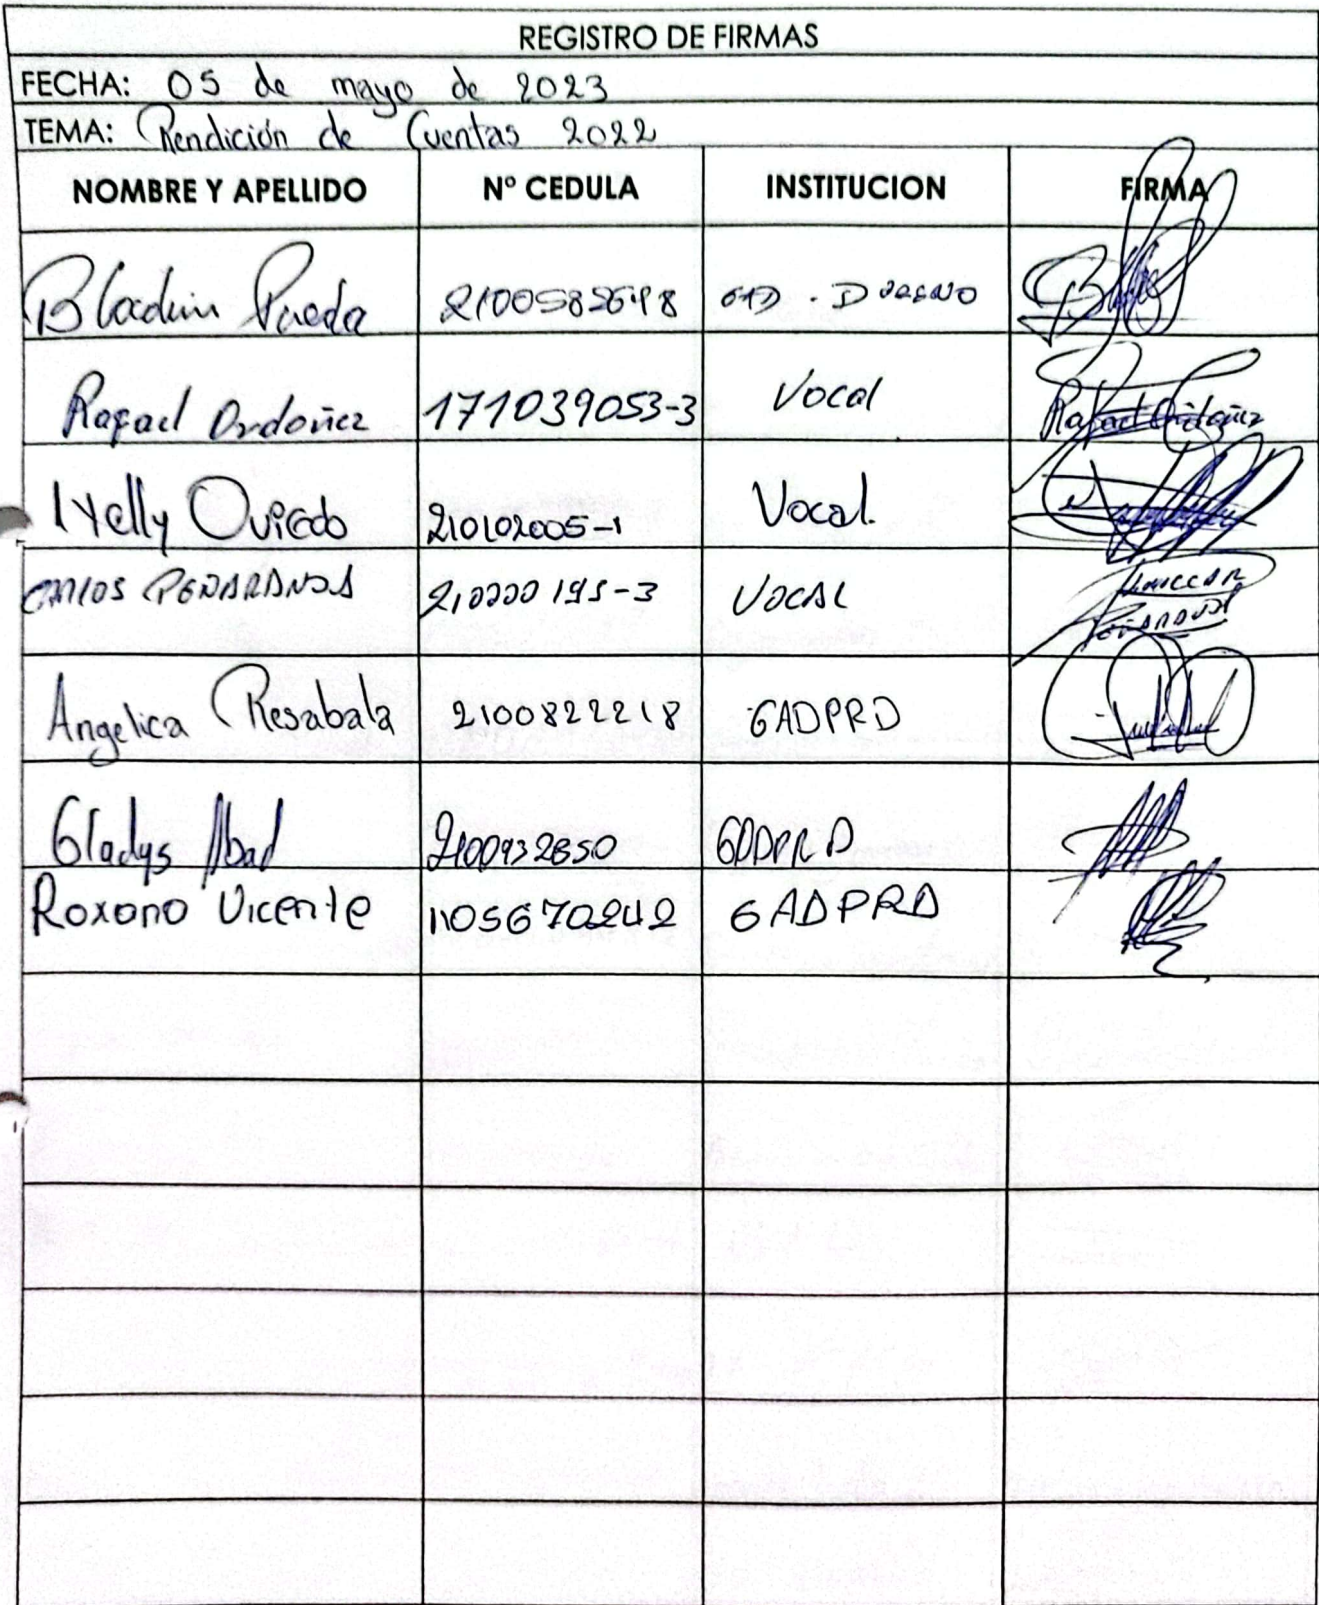 REGISTRO DE FIRMAS
FECHA: 05 de mayo de 2023
TEMA: Rendición de Cuentas 2022
NOMBRE Y APELLIDO Nº CEDULA INSTITUCION FIRMA
Bladimir Rueda GAD. DURENO
Rafael Ordoñez 171039053-3 Vocal Rafael Ordoñez
Oviedo 210102005-1 Vocal.
CARLOS PEÑARANDA VOCAL
Angelica Resabala 2100822218 GADPRD
Gladys Abad 2100932850 GADPRD
Roxana Vicente 1105670242 GADPRD